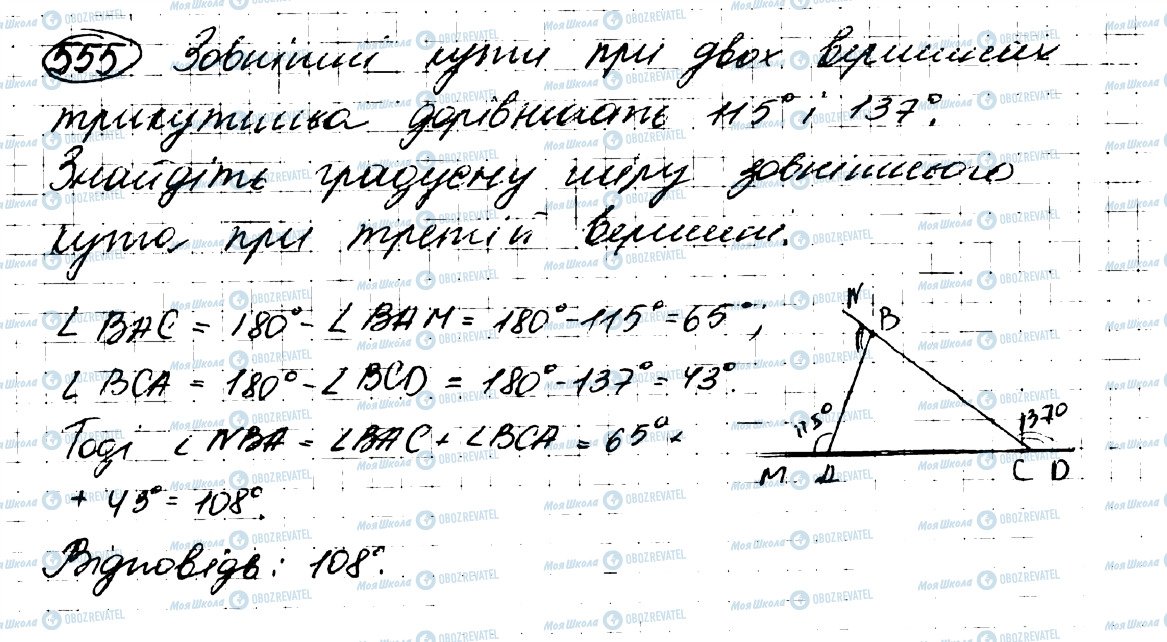 555 Зовнішні кути при двох вершинах
трикутника дорівнюють 115° і 137°.
Знайдіть градусну міру зовнішнього
кута при третій вершині.
∠BAC = 180° - ∠BAM = 180° - 115° = 65°;
∠BCA = 180° - ∠BCD = 180° - 137° = 43°.
Тоді ∠NBA = ∠BAC + ∠BCA = 65° +
+ 43° = 108°.
Відповідь: 108°.
N
B
115°
137°
M A C D
МояШкола OBOZREVATEL